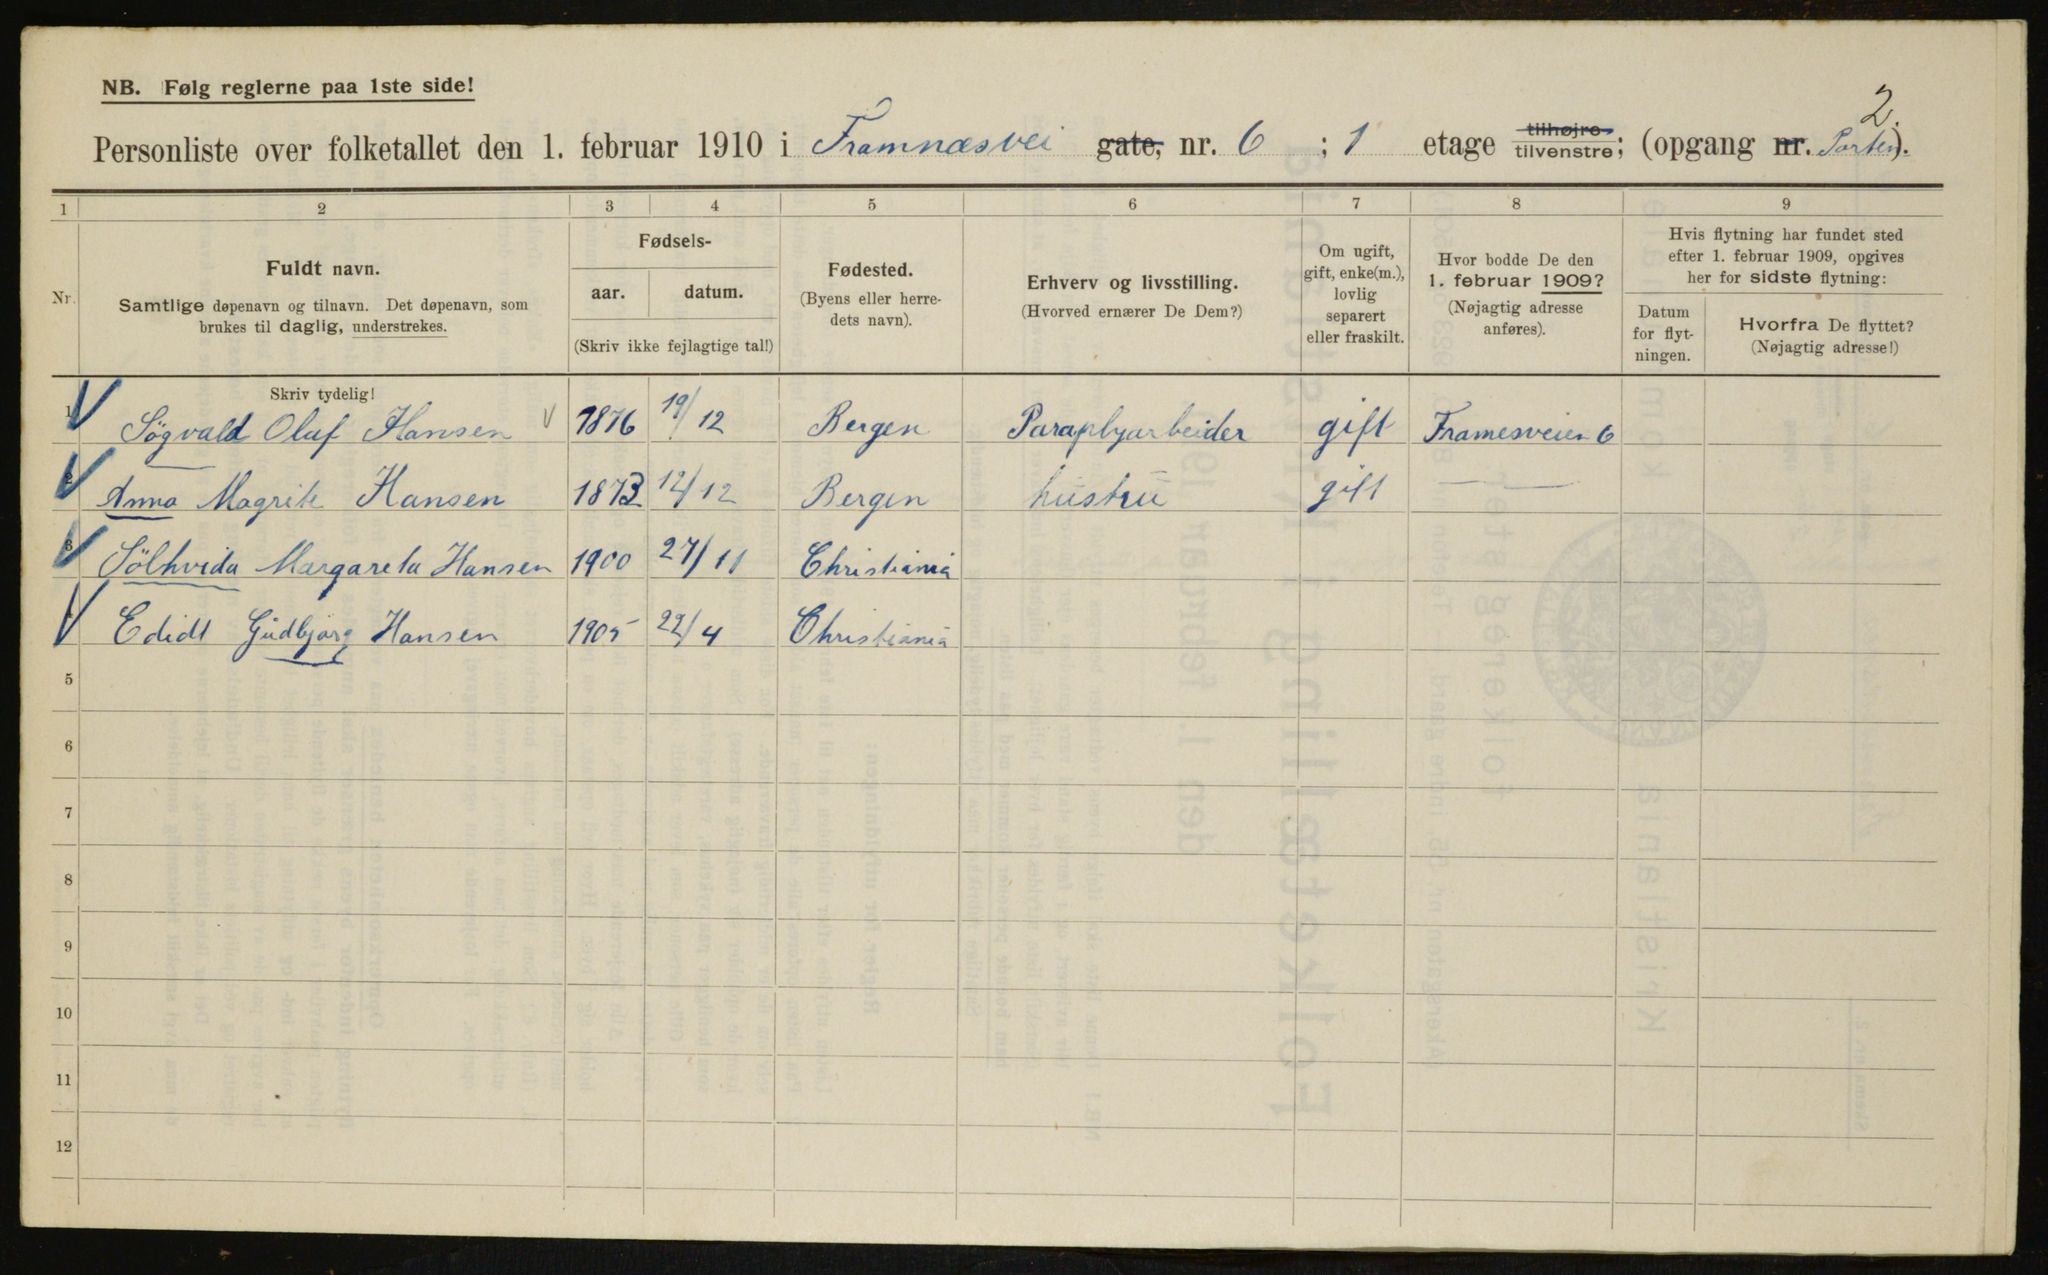 NB. Følg reglerne paa 1ste side!
2.
Personliste over folketallet den 1. februar 1910 i Framnæsvei gate, nr. 6 ; 1 etage tilhøjre tilvenstre; (opgang nr. Porten).
1 2 3 4 5 6 7 8 9
Nr.
Fuldt navn.
Samtlige døpenavn og tilnavn. Det døpenavn, som
brukes til daglig, understrekes.
Fødsels-
aar. datum.
(Skriv ikke fejlagtige tal!)
Fødested.
(Byens eller herre-
dets navn).
Erhverv og livsstilling.
(Hvorved ernærer De Dem?)
Om ugift,
gift, enke(m.),
lovlig
separert
eller fraskilt.
Hvor bodde De den
1. februar 1909?
(Nøjagtig adresse
anføres).
Hvis flytning har fundet sted
efter 1. februar 1909, opgives
her for sidste flytning:
Datum
for flyt-
ningen.
Hvorfra De flyttet?
(Nøjagtig adresse!)
Skriv tydelig!
1 Søgvald Olaf Hansen 1876 19/12 Bergen Paraplyarbeider gift Framesveien 6
2 Anna Magrite Hansen 1873 12/12 Bergen hustru gift — —
3 Sölhvida Margareta Hansen 1900 27/11 Christiania
Edidt Gudbjørg Hansen 1905 22/4 Christiania
5
6
7
8
9
10
11
12